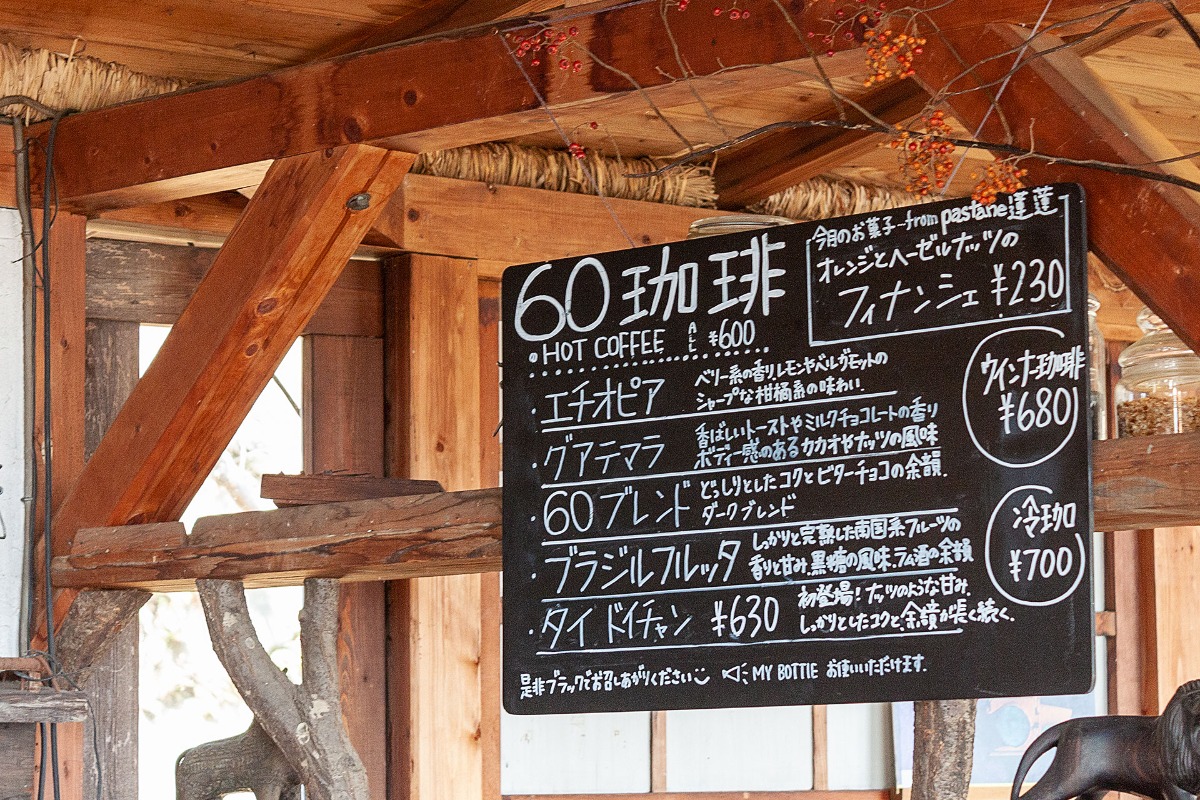 60珈琲
HOT COFFEE ALL ¥600
今月のお菓子…from pastane蓮蓮
オレンジとヘーゼルナッツの
フィナンシェ ¥230
・エチオピア
ベリー系の香りレモンやベルガモットの
シャープな柑橘系の味わい.
・グアテマラ
香ばしいトーストやミルクチョコレートの香り
ボディー感のあるカカオやナッツの風味
・60ブレンド
どっしりとしたコクとビターチョコの余韻.
ダークブレンド
・ブラジルフルッタ
しっかりと完熟した南国系フルーツの
香りと甘み.黒糖の風味.ラム酒の余韻
・タイ ドイチャン ¥630
初登場!ナッツのような甘み.
しっかりとしたコクと、余韻が長く続く.
ウィンナ珈琲
¥680
冷珈
¥700
是非ブラックでお召しあがりください
MY BOTTLE お使いいただけます.